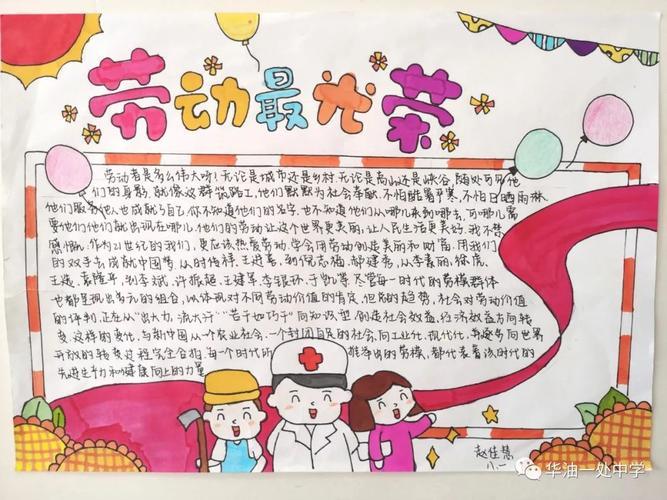 劳动最光荣
劳动者是多么伟大呀!无论是城市还是乡村,无论是高山还是峡谷,随处可见他
们的身影.就像这群筑路工,他们默默为社会奉献.不怕酷暑严寒,不怕日晒雨淋
他们服务他人也成就了自己.你不知道他们的名字,也不知道他们从哪儿来到哪去,可哪儿需
要他们他们就出现在哪儿.他们的劳动让这个世界更美丽,让人民生活更美好.我不禁
感慨,作为21世纪的我们,更应该热爱劳动,学会用劳动创造美丽和财富.用我们
的双手去成就中国梦.从时传祥,王进喜,到倪志福,郝建秀,从李素丽,徐虎,
王选,袁隆平,到李斌,许振超,王建军,李银环,于凯等,尽管每一时代的劳模群体
也都呈现出多元的组合,以体现对不同劳动价值的肯定,但总的趋势,社会对劳动价值
的评判,正在从"出大力,流大汗""苦干加巧干"向知识型,创造社会效益,经济效益方向转
变,这样的变化,与新中国从一个农业社会,一个封闭自足的社会,向工业化,现代化,并逐步向世界
开放的转变过程完全合拍,每个时代所推举出的劳模,都代表着该时代的
先进生产力和健康向上的力量
赵佳慧
八一
华油一处中学